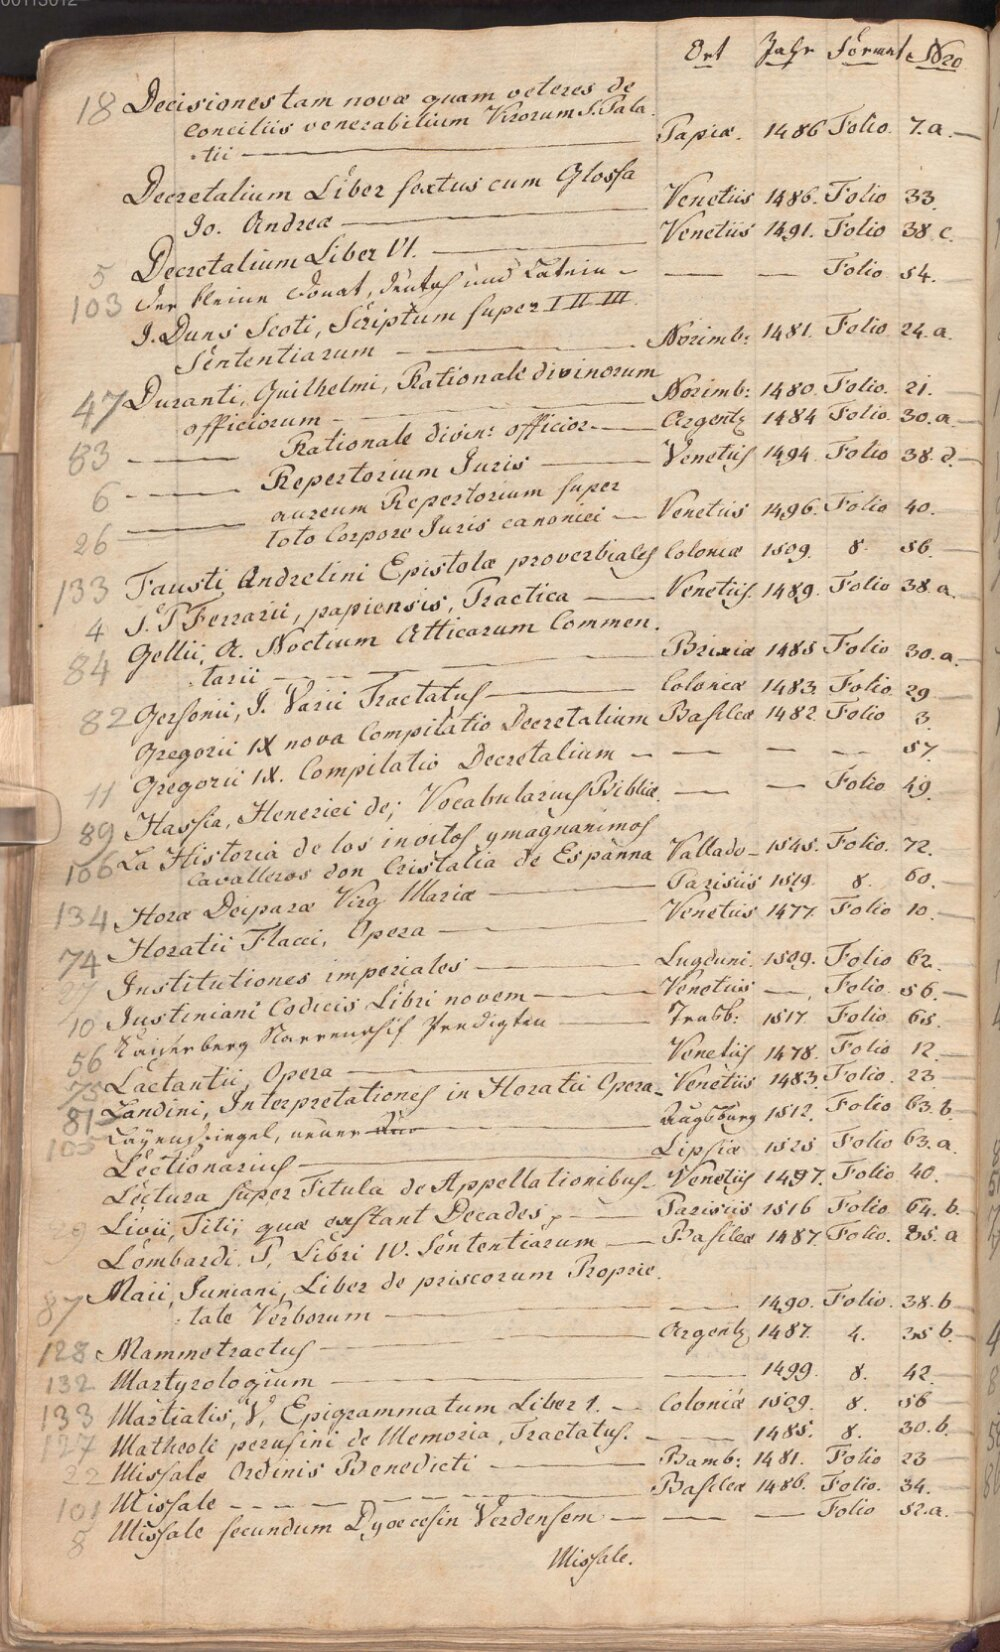 00113012
Ort Jahr Format Nro
18 Decisiones tam novæ quam veteres de
conciliis venerabilium Virorum S. Pala
-tii — Papiæ. 1486 Folio. 7.a.
Decretalium Liber sextus cum Glossa
Jo. Andreæ — Venetiis 1486. Folio 33.
5 Decretalium Liber VI. — Venetiis 1491. Folio 38.c.
103 Der kleine Donat, deutsch und Latein — — — Folio 54.
J. Duns Scoti, Scriptum super I II III.
Sententiarum — Norimb: 1481. Folio 24.a.
47 Duranti, Guilhelmi, Rationale divinorum
officiorum — Norimb: 1480. Folio. 21.
83 — Rationale divin: officior — Argent: 1484 Folio 30.a.
6 — Repertorium Juris — Venetiis 1494. Folio 38.d.
26 — aureum Repertorium super
toto Corpore Juris canonici — Venetiis 1496. Folio 40.
133 Fausti Andrelini Epistolæ proverbiales Coloniæ 1509. 8. 56.
4 J. P Ferrarii, papiensis, Practica — Venetiis 1489. Folio 38.a.
84 Gellii, A. Noctium Atticarum Commen.
-tarii — Brixiæ 1485 Folio 30.a.
82 Gersonii, J. Varii Tractatus — Coloniæ 1483. Folio 29
Gregorii IX nova Compilatio Decretalium Basileæ 1482. Folio 3
11 Gregorii IX. Compilatio Decretalium — — — — 57.
89 Hassia, Henerici de; Vocabularius Bibliæ. — — Folio 49.
106 La Historia de los invitos ymagnanimos
cavalleros don Cristalia de Espanna Vallado — 1545. Folio. 72.
134 Horæ Deiparæ Virg Mariæ — Parisiis 1519. 8. 60.
74 Horatii Flacci, Opera — Venetiis 1477. Folio 10.
27 Institutiones imperiales — Lugduni. 1509. Folio 62.
10 Justiniani Codicis Libri novem — Venetiis —. Folio. 56.
56 Kaiserberg Narrenschif Predigten — Trasb: 1517. Folio 65.
75 Lactantii, Opera — Venetiis 1478. Folio 12.
81 Landini, Interpretationes in Horatii Opera — Venetiis 1483. Folio. 23.
105 Layenspiegel, neuer — Augsburg 1512. Folio 63.b.
Lectionarius — Lipsiæ 1525 Folio 63.a.
Lectura super Titula de Appellationibus — Venetiis 1497. Folio 40.
29 Livii, Titii, quæ exstant Decades, — Parisiis 1516 Folio 64.b.
Lombardi, P, Libri IV. Sententiarum — Basileæ 1487. Folio. 25.a
87 Maii, Juniani, Liber de priscorum Proprie.
-tate Verborum — — 1490. Folio. 38.b
128 Mammetractus — Argent: 1487. 4. 25 b.
132 Martyrologium — — 1499. 8. 42.
133 Martialis, V, Epigrammatum Liber I. — Coloniæ 1509. 8. 56
127 Matheoli perusini de Memoria, Tractatus. — 1485. 8. 30.b.
22 Missale Ordinis Benedicti — Bamb: 1481. Folio 23
101 Missale — Basileæ 1486. Folio. 34.
8 Missale secundum Dyoecesin Verdensem — — — Folio 52.a.
Missale.